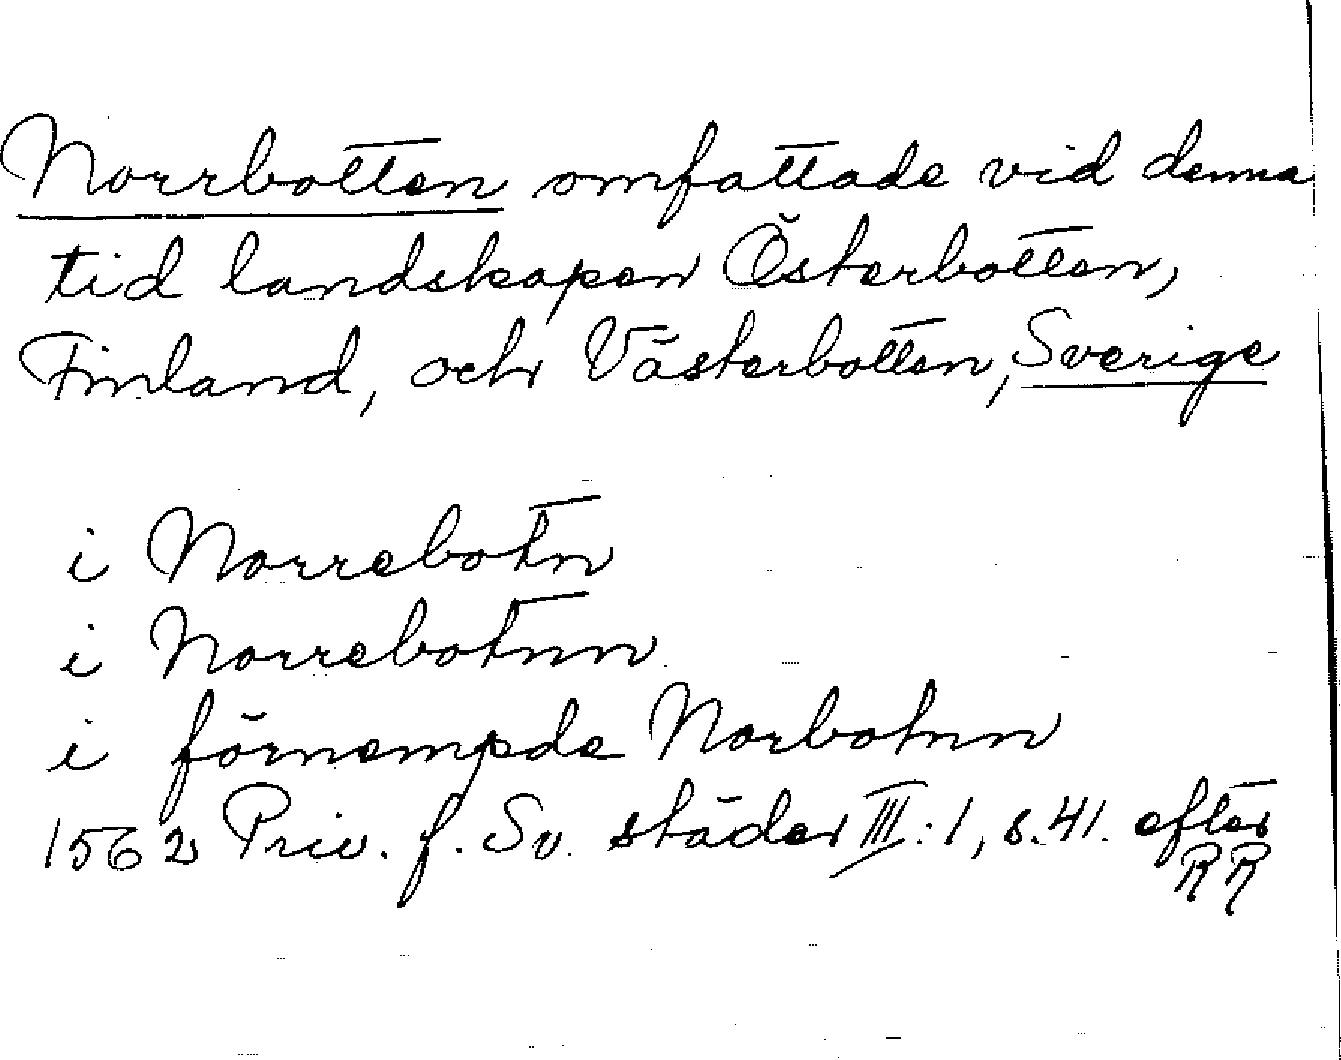 Norrbotten omfattade vid denna
tid landskapen Österbotten,
Finland, och Västerbotten, Sverige
i Norrebotn
i Norrebotnn
i förnempde Norbotnn
1562 Priv. f. Sv. städer III:1, s. 41. efter
RR